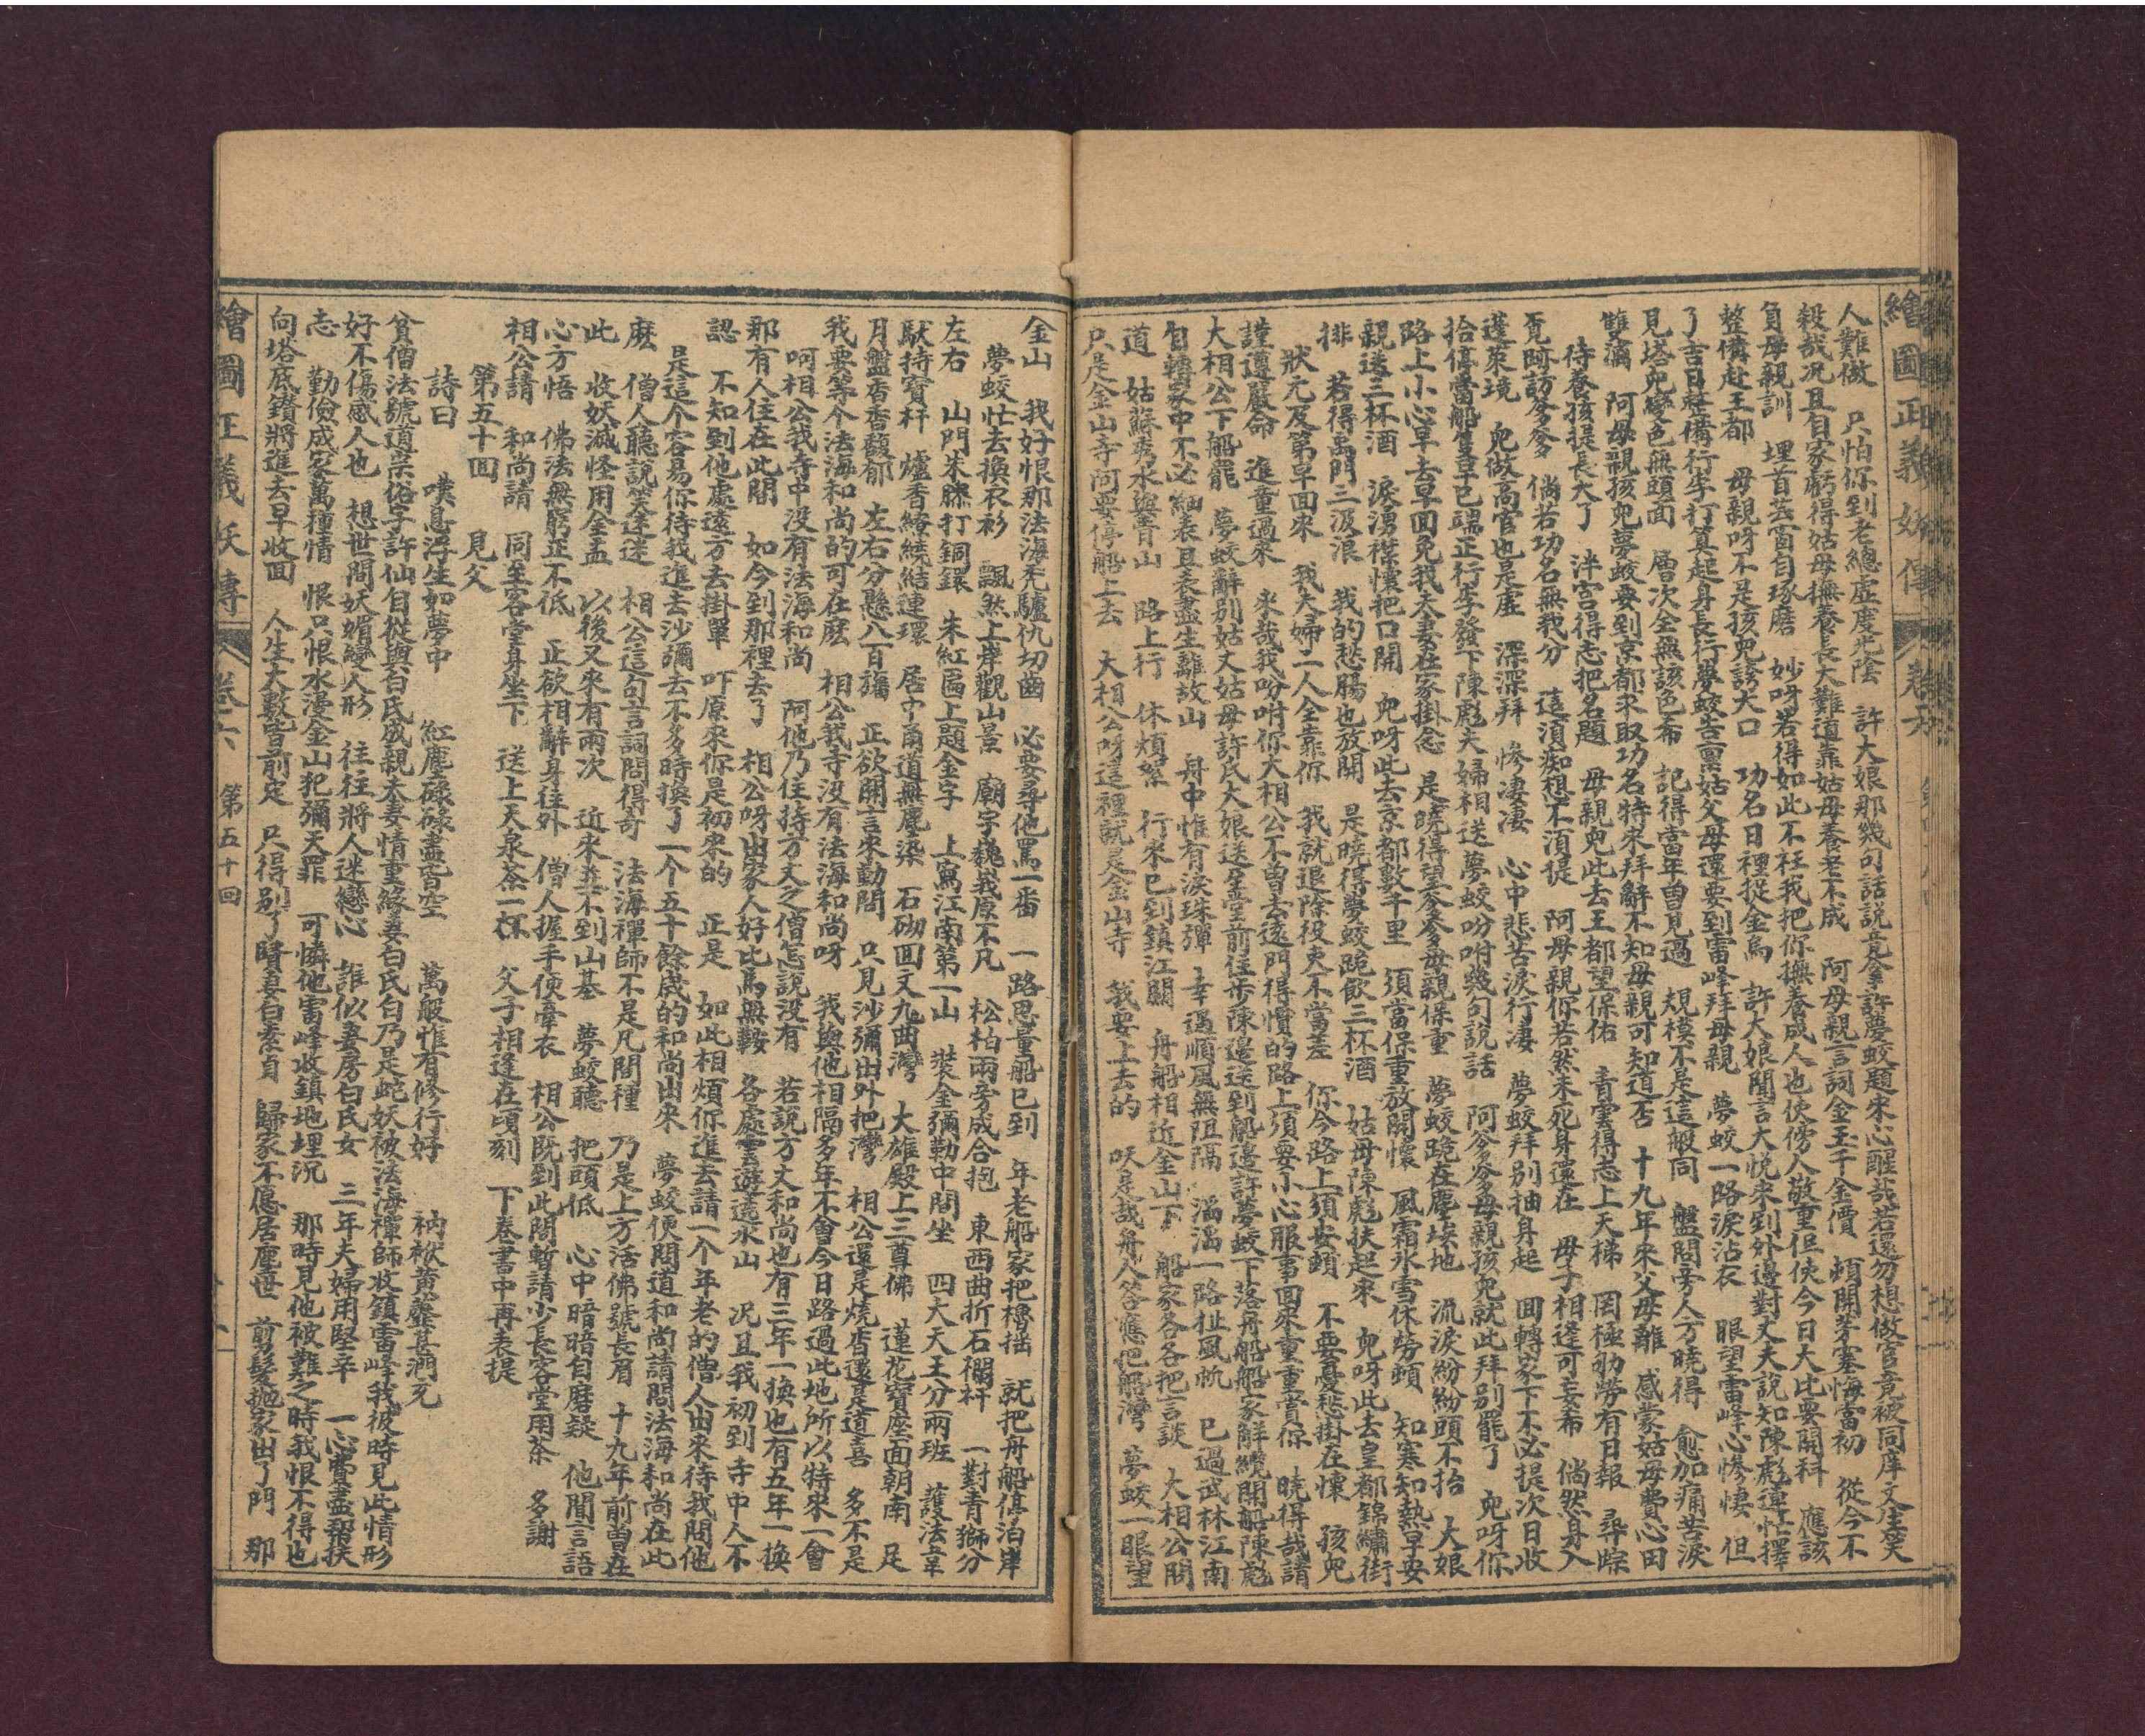 繪圖正義妖傳 卷六
人難做 只怕你到老總虛度光陰 許大娘那幾句話說竟拿許夢蛟題來心醒哉若還勿想做官竟被同庠文生笑
殺哉况且自家虧得姑母撫養長大難道靠姑母養老不成 阿母親言詞金玉千金價 頓開茅塞悔當初 從今不
負母親訓 埋首芸窗自琢磨 妙呀若得如此不枉我把你撫養成人也使傍人敬重但使今日大比要開科 應該
整備赴王都 母親呀不是孩兒該大口 功名日裡捉金烏 許大娘聞言大悅來到外邊對丈夫說知陳彪連忙擇
了吉日整備行李打算起身長行夢蛟告禀姑父母還要到雷峰拜母親 夢蛟一路淚沾衣 眼望雷峰心慘悽 但
見塔兒變色無頭面 層次全無該色布 記得當年曾見過 規模不是這般同 盤問旁人方曉得 愈加痛苦淚
雙滴 阿母親孩兒夢蛟要到京都求取功名特來拜辭不知母親可知道否 十九年來父母離 感蒙姑母費心田
待養孩提長大了 泮宮得志把名題 母親兒此去王都望保佑 青雲得志上天梯 罔極劬勞有日報 尋踪
覓跡訪爹爹 倘若功名無我分 這須痴想不須提 阿母親你若然未死身還在 母子相逢可妄希 倘然身入
蓬萊境 兒做高官也是虛 深深拜 慘淒淒 心中悲苦淚行淒 夢蛟拜別抽身起 回轉家下不必提次日收
拾停當船隻早已端正行李發下陳彪夫婦相送夢蛟吩咐幾句說話 阿爹爹母親孩兒就此拜別罷了 兒呀你
路上小心早去早回免我夫妻在家掛念 是曉得望爹爹母親保重 夢蛟跪在塵埃地 流淚紛紛頭不抬 大娘
親送三杯酒 淚湧襟懷把口開 兒呀此去京都數千里 須當保重放開懷 風霜氷雪休勞頓 知寒知熱早安
排 若得禹門三汲浪 我的愁腸也放開 是曉得夢蛟跪飲三杯酒 姑母陳彪扶起來 兒呀此去皇都錦繡街
狀元及第早回來 我夫婦二人全靠你 我就退除役吏不當差 你今路上須安頓 不要憂愁掛在懷 孩兒
謹遵嚴命 進童過來 來哉我吩咐你大相公不曾去遠門得慣的路上須要小心服事回來重重賞你 曉得哉請
大相公下船罷 夢蛟辭別姑丈姑母許氏大娘送至堂前住步陳邊送到船邊許夢蛟下落舟船船家解纜開船陳彪
自轉家中不必細表且表盡生離故山 舟中惟有淚珠彈 幸遇順風無阻隔 滔滔一路扯風帆 已過武林江南
道 姑蘇秀水與青山 路上行 休煩絮 行來已到鎮江關 舟船相近金山下 船家各各把言談 大相公問
只是金山寺阿要停船上去 大相公呀這裡就是金山寺 我要上去的 吠是哉舟人答應把船灣 夢蛟一眼望
金山 我好恨那法海禿驢仇切齒 必要尋他罵一番 一路思量船已到 年老船家把櫓揺 就把舟船停泊岸
夢蛟忙去換衣衫 飄然上岸觀山景 廟宇巍峩原不凡 松柏兩旁成合抱 東西曲折石欄杆 一對青獅分
左右 山門朱膝打銅鐶 朱紅匾上題金字 上寫江南第一山 裝金彌勒中間坐 四大天王分兩班 護法韋
馱持寶杆 爐香繚繞結連環 居中甬道無塵染 石砌回文九曲灣 大雄殿上三尊佛 蓮花寶座面朝南 足
月盤香香馥郁 左右分懸八百旛 正欲開言來動問 只見沙彌出外把灣 相公還是燒香還是道喜 多不是
我要等个法海和尚的可在麽 相公我寺沒有法海和尚呀 我與他相隔多年不會今日路過此地所以特來一會
呵相公我寺中沒有法海和尚 阿他乃住持方丈之僧怎說沒有 若說方丈和尚也有三年一換也有五年一換
那有人住在此間 如今到那裡去了 相公呀出家人好比馬無鞍 各處雲遊遶水山 况且我初到寺中人不
認 不知到他處遠方去掛單 吓原來你是初來的 正是 如此相煩你進去請一个年老的僧人出來待我問他
是這个容易你待我進去沙彌去不多時換了一个五十餘歲的和尚出來 夢蛟便問道和尚請問法海和尚在此
麽 僧人聽說笑迷迷 相公這句言詞問得奇 法海禪師不是凡間種 乃是上方活佛號長眉 十九年前曾在
此 收妖滅怪用金盂 以後又來有兩次 近來並不到山基 夢蛟聽 把頭低 心中暗暗自磨疑 他聞言語
心方悟 佛法無窮並不低 正欲相辭身往外 僧人握手便牽衣 相公既到此間暫請少長客堂用茶 多謝
相公請 和尚請 同至客堂身坐下 送上天泉茶一杯 父子相逢在頃刻 下卷書中再表提
第五十回 見父
詩曰 嘆息浮生如夢中 紅塵碌碌盡皆空 萬般惟有修行好 衲襖黃虀甚濶充
貧僧法號道宗俗字許仙自從與白氏成親夫妻情重緣妻白氏白乃是蛇妖被法海禪師收鎮雷峰我彼時見此情形
好不傷感人也 想世間妖媚變人形 往往將人迷戀心 誰似妻房白氏女 三年夫婦用堅辛 一心費盡帮扶
志 勤儉成家萬種情 恨只恨水漫金山犯彌天罪 可憐他雷峰收鎮地埋沉 那時見他被難之時我恨不得也
向塔底鑽將進去早收回 人生大數皆前定 只得別了賢妻白素貞 歸家不愿居塵世 剪髮拋家出了門 那
繪圖正義妖傳 卷六 第五十回